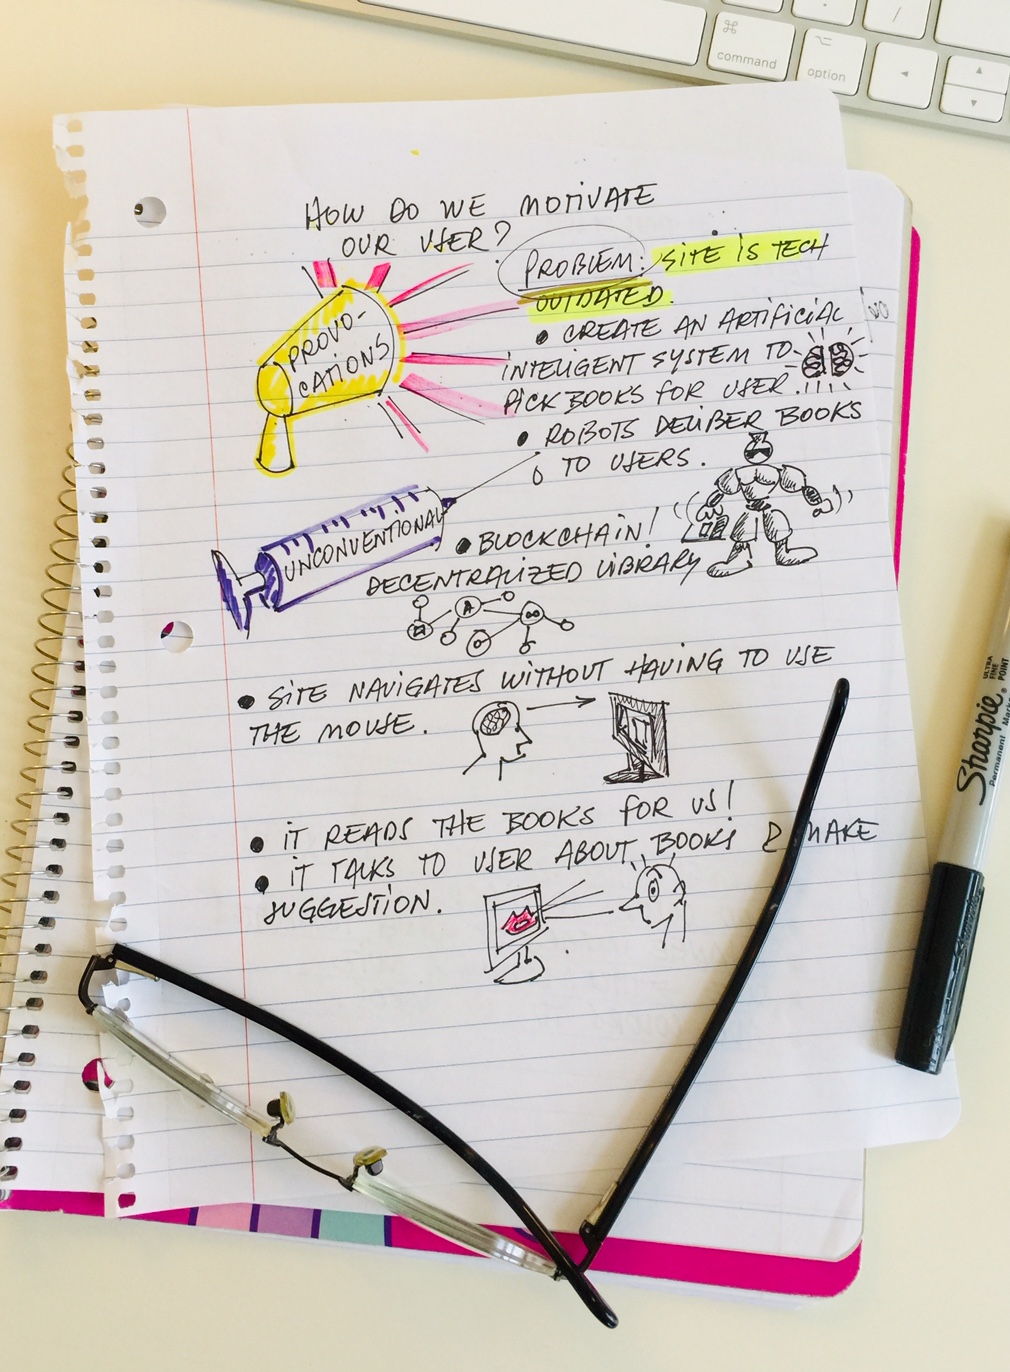 ⌘
command
⌥
option
/
HOW DO WE MOTIVATE
OUR USER?
PROBLEM: SITE IS TECH
OUTDATED.
PROVO-
CATIONS
• CREATE AN ARTIFICIAL
INTELIGENT SYSTEM TO
PICK BOOKS FOR USER.
• ROBOTS DELIBER BOOKS
TO USERS.
UNCONVENTIONAL
• BLOCKCHAIN!
DECENTRALIZED LIBRARY
A
• SITE NAVIGATES WITHOUT HAVING TO USE
THE MOUSE.
• IT READS THE BOOKS FOR US!
• IT TALKS TO USER ABOUT BOOKS & MAKE
SUGGESTION.
Sharpie
Permanent
ULTRA
FINE
POINT